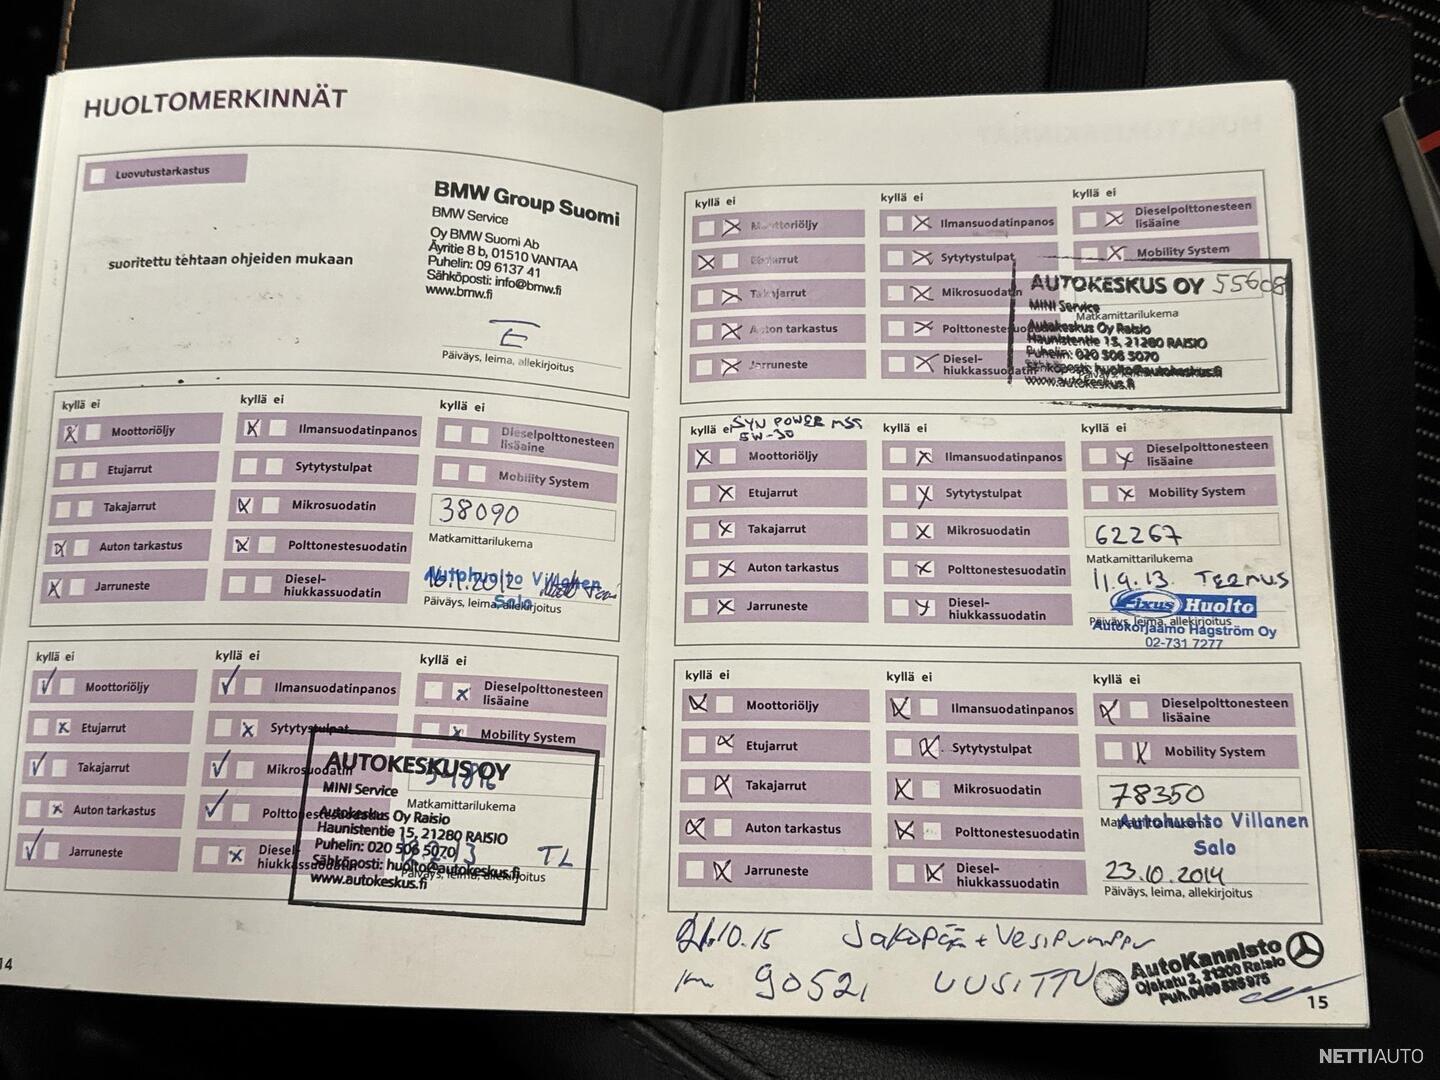 HUOLTOMERKINNÄT
Luovutustarkastus
suoritettu tehtaan ohjeiden mukaan
BMW Group Suomi
BMW Service
Oy BMW Suomi Ab
Äyritie 8 b, 01510 VANTAA
Puhelin: 09 6137 41
Sähköposti: info@bmw.fi
www.bmw.fi
Päiväys, leima, allekirjoitus
kyllä ei
kyllä ei
kyllä ei
Moottoriöljy
Ilmansuodatinpanos
Dieselpolttonesteen
lisäaine
Etujarrut
Sytytystulpat
Mobility System
Takajarrut
Mikrosuodatin
38090
Matkamittarilukema
Auton tarkastus
Polttonestesuodatin
Autohuolto Villanen
Salo
Jarruneste
Diesel-
hiukkassuodatin
Päiväys, leima, allekirjoitus
kyllä ei
kyllä ei
kyllä ei
Moottoriöljy
Ilmansuodatinpanos
Dieselpolttonesteen
lisäaine
Etujarrut
Sytytystulpat
Mobility System
Takajarrut
Mikrosuodatin
Matkamittarilukema
Auton tarkastus
Polttonestesuodatin
Jarruneste
Diesel-
hiukkassuodatin
AUTOKESKUS OY
MINI Service
Autokeskus Oy Raisio
Haunistentie 15, 21280 RAISIO
Puhelin: 020 506 5070
Sähköposti: huolto@autokeskus.fi
www.autokeskus.fi
TL
Päiväys, leima, allekirjoitus
14
kyllä ei
kyllä ei
kyllä ei
Moottoriöljy
Ilmansuodatinpanos
Dieselpolttonesteen
lisäaine
Etujarrut
Sytytystulpat
Mobility System
Takajarrut
Mikrosuodatin
Auton tarkastus
Polttonestesuodatin
Jarruneste
Diesel-
hiukkassuodatin
AUTOKESKUS OY
55608
MINI Service
Matkamittarilukema
Autokeskus Oy Raisio
Haunistentie 15, 21280 RAISIO
Puhelin: 020 506 5070
Sähköposti: huolto@autokeskus.fi
www.autokeskus.fi
SYN POWER MST
5W-30
kyllä ei
kyllä ei
kyllä ei
Moottoriöljy
Ilmansuodatinpanos
Dieselpolttonesteen
lisäaine
Etujarrut
Sytytystulpat
Mobility System
Takajarrut
Mikrosuodatin
62267
Matkamittarilukema
Auton tarkastus
Polttonestesuodatin
11.9.13
Jarruneste
Diesel-
hiukkassuodatin
Fixus Huolto
Päiväys, leima, allekirjoitus
Autokorjaamo Hagström Oy
02-731 7277
kyllä ei
kyllä ei
kyllä ei
Moottoriöljy
Ilmansuodatinpanos
Dieselpolttonesteen
lisäaine
Etujarrut
Sytytystulpat
Mobility System
Takajarrut
Mikrosuodatin
78350
Matkamittarilukema
Auton tarkastus
Polttonestesuodatin
Autohuolto Villanen
Salo
Jarruneste
Diesel-
hiukkassuodatin
23.10.2014
Päiväys, leima, allekirjoitus
21.10.15 Jakopää + Vesipumppu
km 90521 UUSITTU
AutoKannisto
Ojakatu 2, 21200 Raisio
Puh.0400 525 975
15
NETTIAUTO